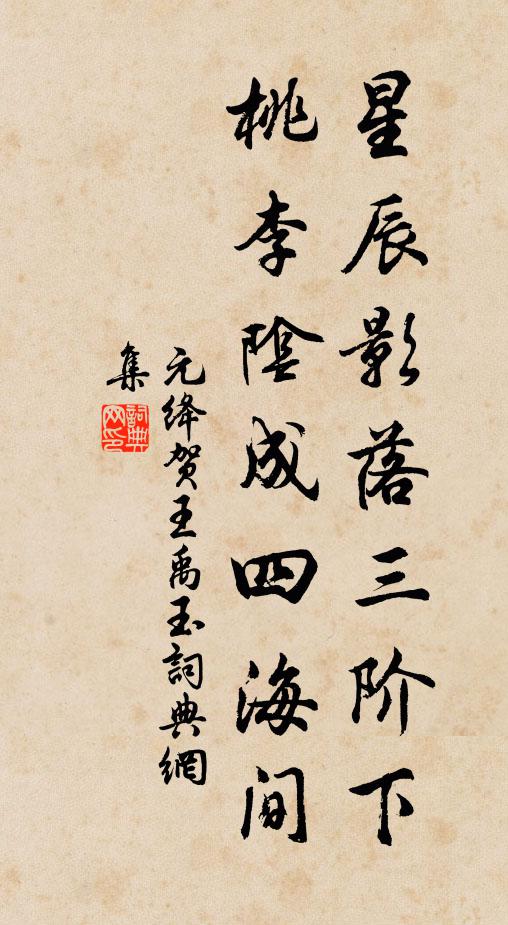 星辰影落三阶下
桃李陰成四海间
元绛贺王禹玉詞典網
集
詞典网印